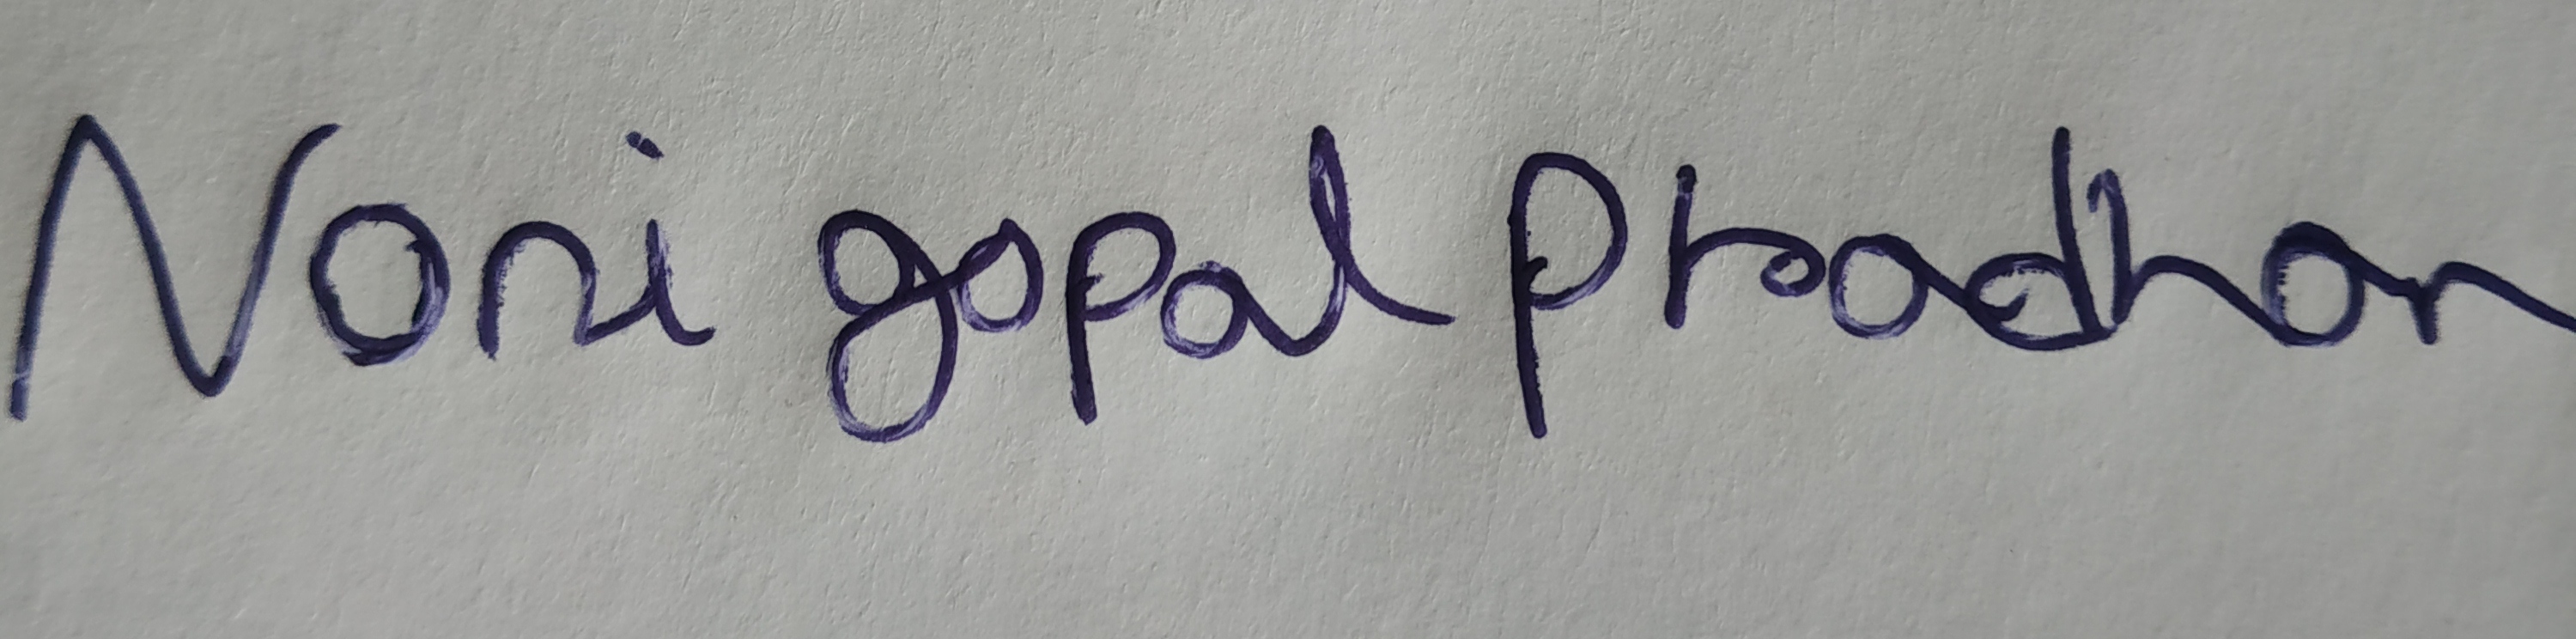 Noni gopal Pradhan